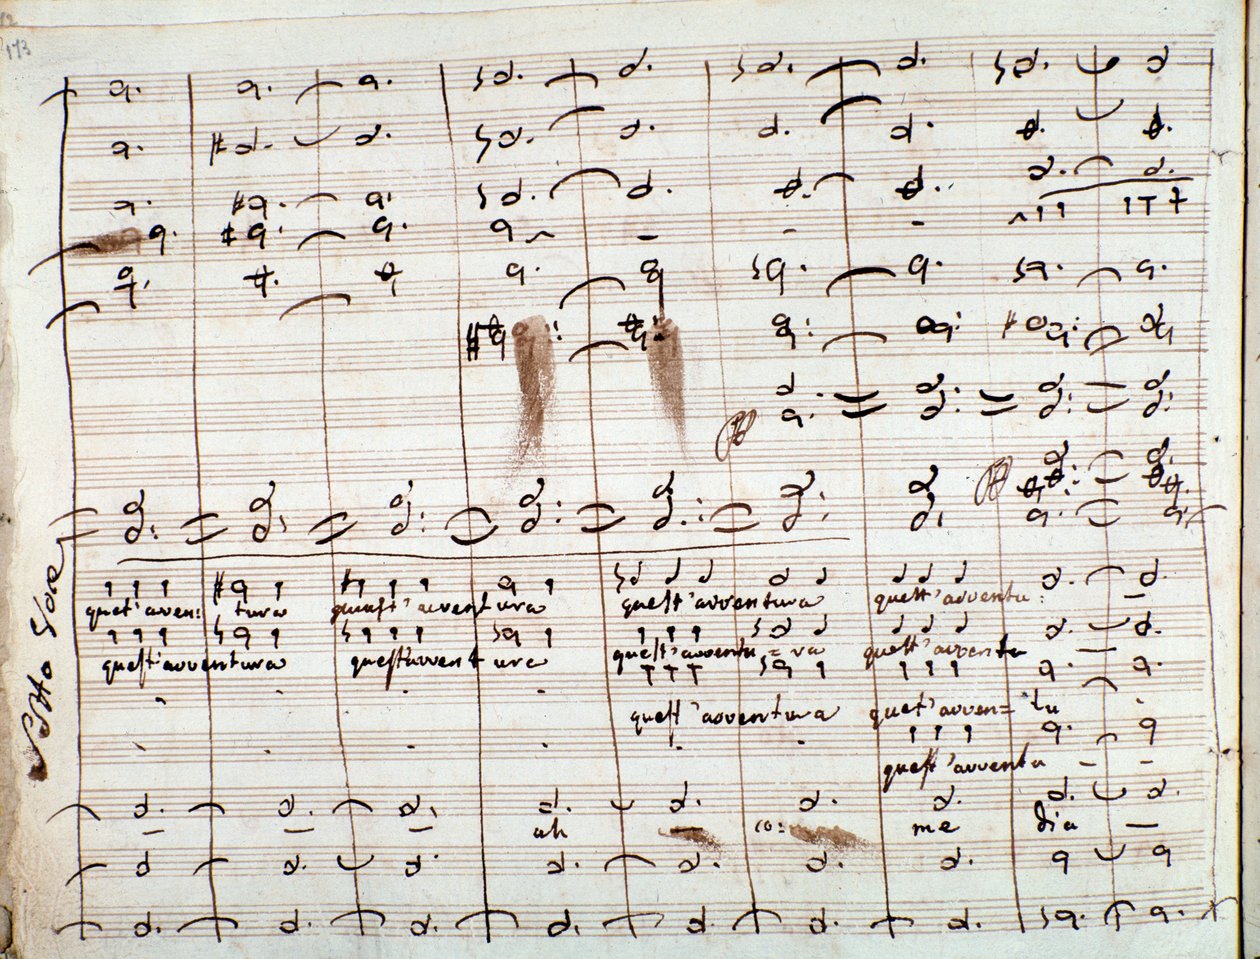 173
quest' aven: tura quest' avventura quest' avventura quest' avventu:
quest' avventura quest' avvent ura quest' avventu = ra quest' avventu
quest' avventura quest' avven= tu
quest' avventu
ah co: me dia
Sotto Voce